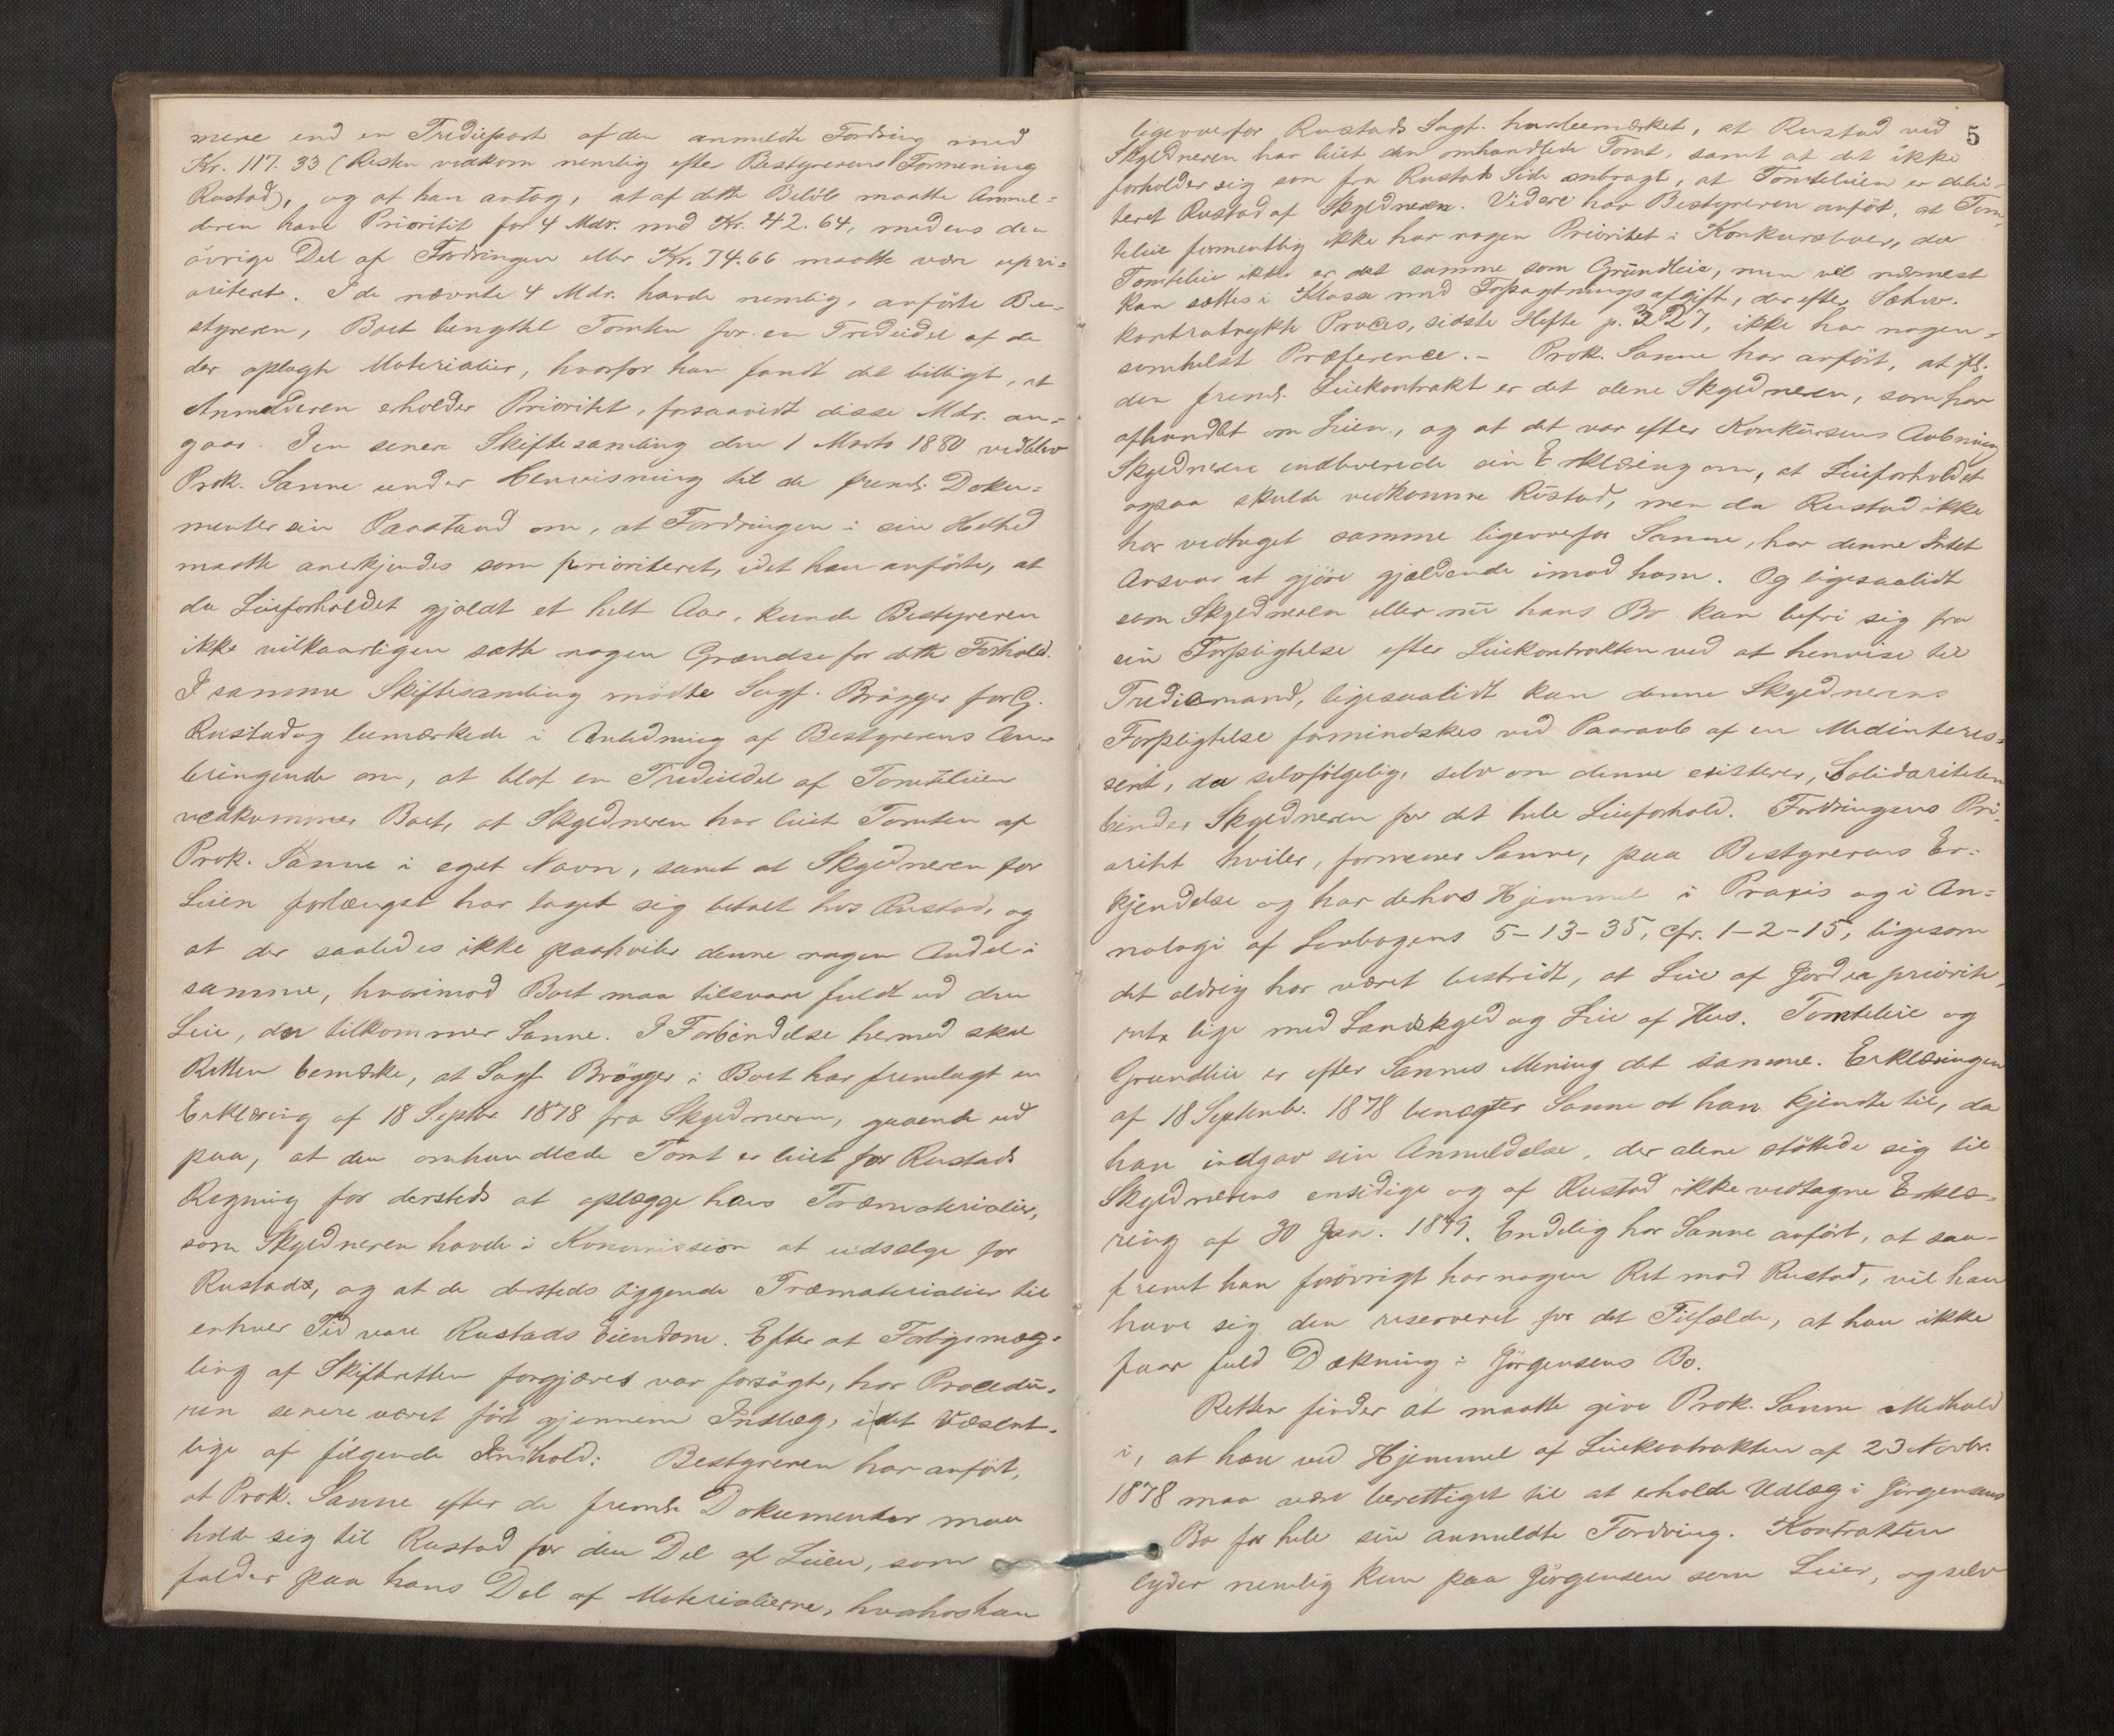 mere end en Trediepart af den anmeldte Fordring med
Kr. 117. 33 (Resten vedkom nemlig efter Bestyrerens Formening
Rustad), og at han antog, at af dette Beløb maatte Anmel=
deren have Prioritet for 4 Mdr. med Kr. 42.64, medens den
övrige Del af Fordringen eller Kr. 74.66 maatte være upri=
oriteret. I de nævnte 4 Mdr. havde nemlig, anförte Be=
styreren, Boet benyttet Tomten for en Trediedel af de
der oplagte Materialier, hvorfor han fandt det billigt, at
Anmelderen erholder Prioritet, forsaavidt disse Mdr. an=
gaar. I en senere Skiftesamling den 1 Marts 1880 vedblev
Prok. Sanne under Henvisning til de freml. Doku=
menter sin Paastand om, at Fordringen i sin Helhed
maatte anerkjendes som prioriteret, idet han anförte, at
da Leieforholdet gjaldt et helt Aar, kunde Bestyreren
ikke vilkaarligen sætte nogen Grændse for dette Forhold.
I samme Skiftesamling mödte Sagf. Brögger for G.
Rustad og bemærkede i Anledning af Bestyrerens An=
bringende om, at blot en Trediedel af Tomteleien
vedkommer Boet, at Skyldneren har leiet Tomten af
Prok. Sanne i eget Navn, samt at Skyldneren for
Leien forlængst har taget sig betalt hos Rustad, og
at der saaledes ikke paahviler denne nogen Andel i
samme, hvorimod Boet maa tilsvare fuldt ud den
Leie, der tilkommer Sanne. I Forbindelse hermed skal
Retten bemærke, at Sagf. Brögger i Boet har fremlagt en
Erklæring af 18 Septbr. 1878 fra Skyldneren, gaaende ud
paa, at den omhandlede Tomt er leiet for Rustads
Regning for dersteds at oplægge hans Træmaterialier,
som Skyldneren havde i Kommission at udsælge for
Rustad, og at de dersteds liggende Træmaterialier til
enhver Tid vare Rustads Eiendom. Efter at Forligsmæg=
ling af Skifteretten forgjæves var forsögt, har Procedu=
ren senere været fört gjennem Indlæg, i det Væsent=
lige af fölgende Indhold: Bestyreren har anfört,
at Prok. Sanne efter de freml. Dokumenter maa
holde sig til Rustad for den Del af Leien, som
falder paa hans Del af Materialierne, hvorhos han
5
ligeoverfor Rustads Sagf. har bemærket, at Rustad ved
Skyldneren har leiet den omhandlede Tomt, samt at det ikke
forholder sig som fra Rustads Side anbragt, at Tomteleien er debi=
teret Rustad af Skyldneren. Videre har Bestyreren anfört, at Tom=
teleie formentlig ikke har nogen Prioritet i Konkursboer, da
Tomteleie ikke er det samme som Grundleie, men vil nærmest
kan sættes i Klasse med Forpagtningsafgift, der efter Schw.
kontratrykte Proces, sidste Hefte p. 327, ikke har nogen=
somhelst Præference. – Prok. Sanne har anfört, at ifl.
den freml. Leiekontrakt er det alene Skyldneren, som har
afhandlet om Leien, og at det var efter Konkursens Aabning
Skyldneren indleverede sin Erklæring om, at Leieforholdet
ogsaa skulde vedkomme Rustad, men da Rustad ikke
har vedtaget samme ligeoverfor Sanne, har denne Intet
Ansvar at gjöre gjældende imod ham. Og ligesaalidt
som Skyldneren eller nu hans Bo kan befri sig fra
sin Forpligtelse efter Leiekontrakten ved at henvise til
Trediemand, ligesaalidt kan denne Skyldnerens
Forpligtelse formindskes ved Paaraab af en Medinteres=
sent, da selvfölgelig, selv om denne existerer, Solidariteten
binder Skyldneren for det hele Leieforhold. Fordringens Pri=
oritet hviler, formener Sanne, paa Bestyrerens Er=
kjendelse og har dehos Hjemmel i Praxis og i An=
nalogi af Lovbogens 5–13–35, cfr. 1–2–15, ligesom
det aldrig har været bestridt, at Leie af Jord er priorite=
ret lige med Landskyld og Leie af Hus. Tomteleie og
Grundleie er efter Sannes Mening det samme. Erklæringen
af 18 Septembr. 1878 benægter Sanne at han kjendte til, da
han indgav sin Anmeldelse, der alene støttede sig til
Skyldnerens ensidige og af Rustad ikke vedtagne Erklæ=
ring af 30 Jan. 1879. Endelig har Sanne anfört, at saa=
fremt han forövrigt har nogen Ret mod Rustad, vil han
have sig den reserveret for det Tilfælde, at han ikke
faar fuld Dækning i Jörgensens Bo.
Retten finder at maatte give Prok. Sanne Medhold
i, at han ved Hjemmel af Leiekontrakten af 23 Novbr.
1878 maa være berettiget til at erholde Udlæg i Jörgensens
Bo for hele sin anmeldte Fordring. Kontrakten
lyder nemlig kun paa Jörgensen som Leier, og selv